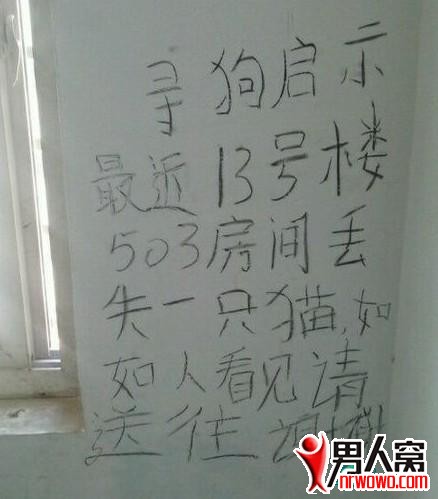 寻狗启示
最近13号楼
503房间丢
失一只猫,如
如人看见请
送往
男人窝
nrwowo.com